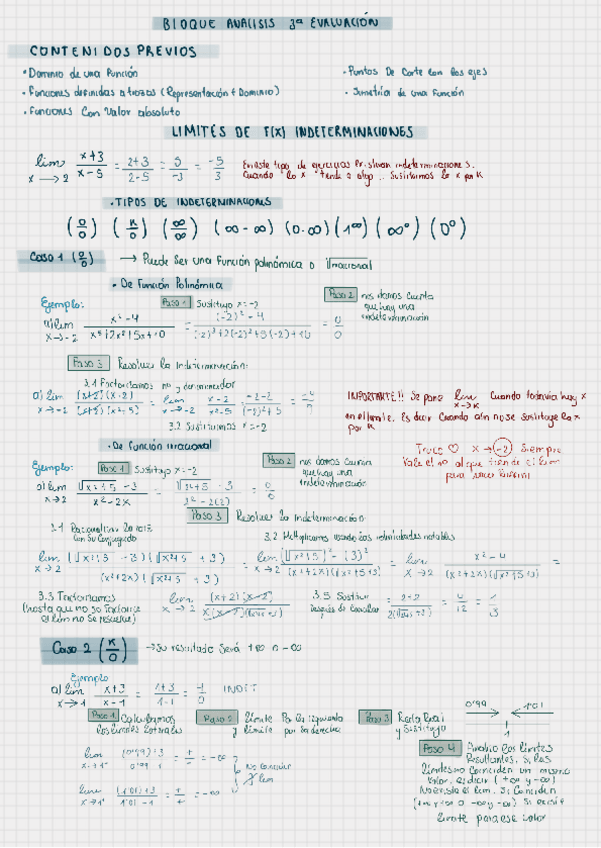 BLOQUE ANALISIS 3ª EVALUACIÓN
CONTENIDOS PREVIOS
• Dominio de una Función
• Puntos De Corte con los ejes
• Funciones definidas a trozos (Representación + Dominio)
• Simetría de una Función
• Funciones Con Valor absoluto
LIMITES DE F(X) INDETERMINACIONES
lim x→2 x+3/x-5 = 2+3/2-5 = 5/-3 = -5/3
En este tipo de ejercicios
Cuando la x tiende a algo .. Sustituimos la x por K
• TIPOS DE INDETERMINACIONES
(0/0) (K/0) (∞/∞) (∞-∞) (0·∞) (1^∞) (∞^0) (0^0)
Caso 1 (0/0) → Puede Ser una Función polinómica o irracional
• De Función Polinómica
Ejemplo: Paso 1 Sustituyo x=-2
Paso 2 nos damos cuenta
que hay una
indeterminación
a) lim x→-2 x²-4 / = (-2)²-4 / = 0/0
Paso 3 Resolver la Indeterminación:
3.1 Factorizamos y denominador
a) lim x→-2 (x+2)(x-2) / = lim x→-2 x-2 / = -2-2 / =
3.2 Sustituimos x=-2
IMPORTANTE!! Se pone lim x→K Cuando todavía hay x
en el límite. Es decir Cuando aún no se sustituye la x
por K
Truco ♡ x→(-2) Siempre
Vale el nº al que tiende el lim
para hacer
• De Función irracional
Ejemplo: Paso 1 Sustituyo x=-2
Paso 2 nos damos cuenta
que hay una
indeterminación
a) lim x→2 √x²+5 - 3 / x²-2x = √ - 3 / = 0/0
Paso 3 Resolver la Indeterminación
3.1 Racionalizo la raíz
con su Conjugado
3.2 Multiplicamos usando las identidades notables
lim x→2 (√x²+5 - 3)(√x²+5 + 3) / (x²+2x)(√x²+5 + 3) = lim x→2 (√x²+5)² - (3)² / (x²+2x)(√x²+5+3) = lim x→2 x²-4 / (x²+2x)(√x²+5+3) =
3.3 Factorizamos
(hasta que no se factorice
el lim no se resuelve)
lim x→2 (x+2)(x-2) /
3.5 Sustituir
después de
= 4/12 = 1/3
Caso 2 (K/0) → Su resultado Será +∞ o -∞
Ejemplo
a) lim x→1 x+3/x-1 = 1+3/1-1 = INDET
Paso 1 Calculamos
los límites laterales
Paso 2 límite Por la izquierda
y límite por la derecha
Paso 3 Recta Real
y Sustituyo
0'99 1'01
1
lim x→1⁻ (0'99)+3 / 0'99-1 = = -∞
No coinciden
∄ lim
lim x→1⁺ (1'01)+3 / 1'01-1 = +/+ =
Paso 4 Analizo los límites
Resultantes. Si los
límites no Coinciden un mismo
valor, es decir (+∞ y -∞)
No existe el lim. Si Coinciden
(+∞ y +∞ o -∞ y -∞) Si existe
límite para ese valor